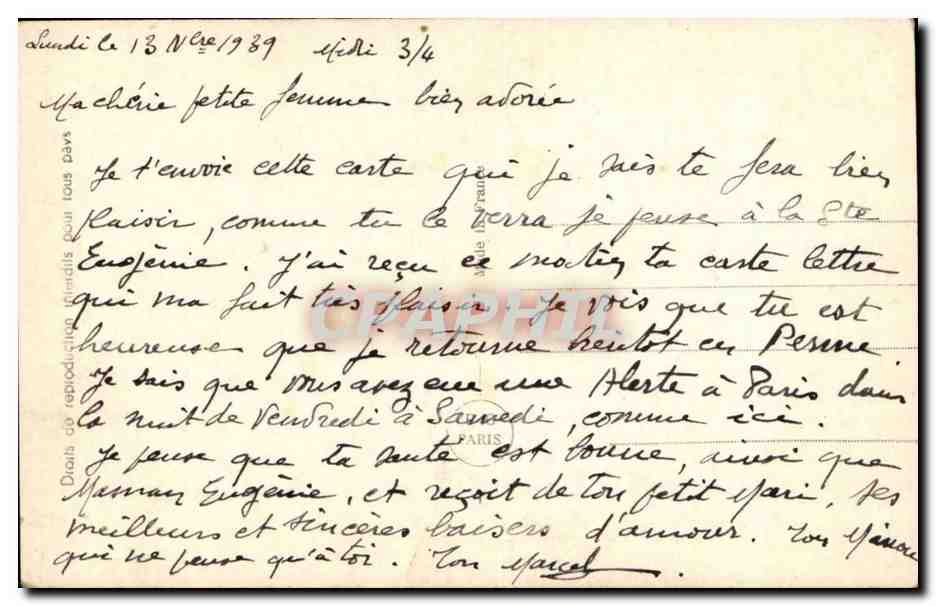 Lundi le 13 Nbre 1939 Midi 3/4
Ma chérie petite femme bien adorée
Je t'envoie cette carte qui je sais te fera bien
plaisir, comme tu le verra je pense à la Ste
Eugènie. J'ai reçu ce matin ta carte lettre
qui ma fait très plaisir. Je vois que tu est
heureuse que je retourne bientot en Perme
Je sais que vous avez eu une Alerte à Paris dans
la nuit de Vendredi à Samedi, comme ici.
Je pense que ta santé est bonne, ainsi que
Maman Eugènie, et reçoit de ton petit Mari, ses
meilleurs et sincères baisers d'amour. Ton
qui ne pense qu'à toi. Ton Marcel
Droits de reproduction interdits pour tous pays
Made in France
PARIS
CRAPHIL